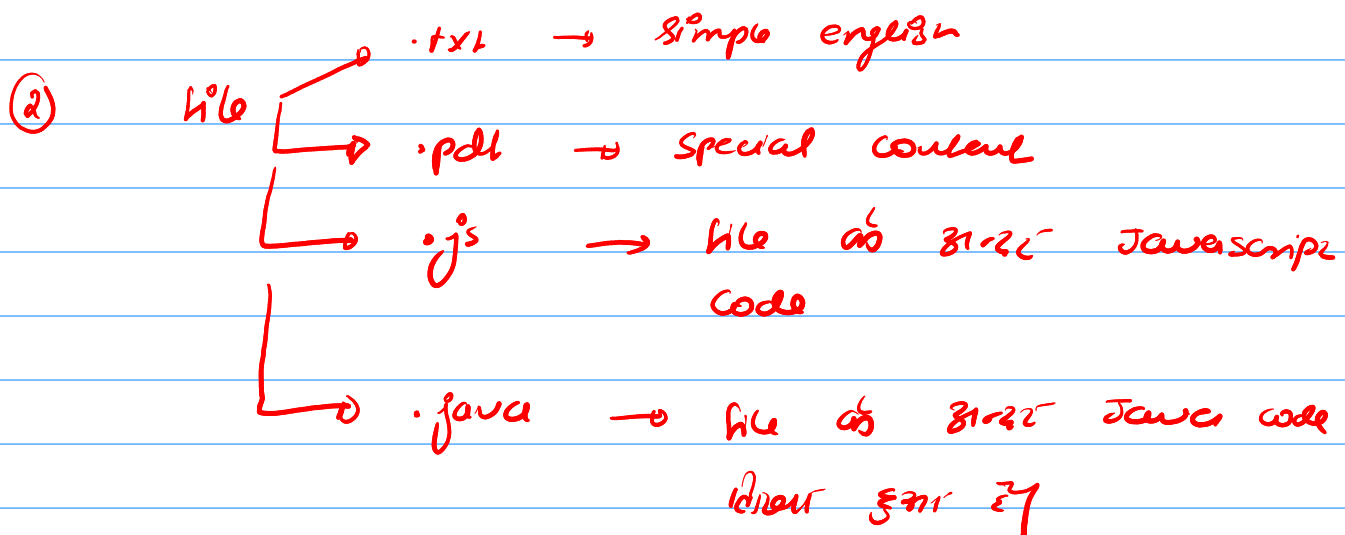 .txt → simple english
② file
.pdf → special content
.js → file के अन्दर Javascript
code
.java → file के अन्दर Java code
लिखा हुआ है